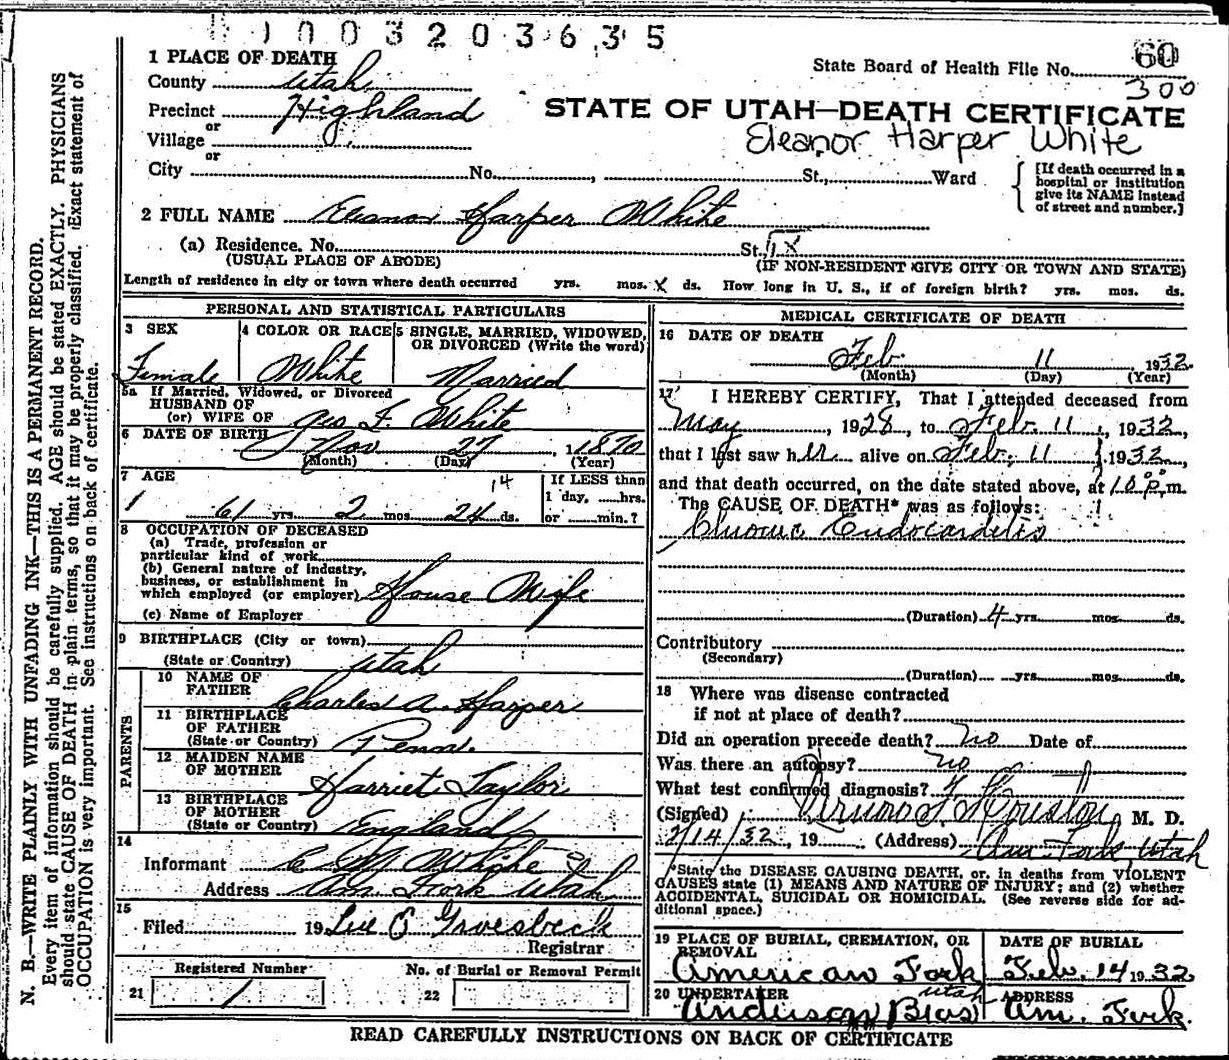 1003203635
1 PLACE OF DEATH
County Utah
State Board of Health File No. 60
300
Precinct Highland
STATE OF UTAH—DEATH CERTIFICATE
or
Village
Eleanor Harper White
or
City No. , St., Ward
[If death occurred in a hospital or institution give its NAME instead of street and number.]
2 FULL NAME Eleanor Harper White
(a) Residence. No. St.,
(USUAL PLACE OF ABODE)
(IF NON-RESIDENT GIVE CITY OR TOWN AND STATE)
Length of residence in city or town where death occurred yrs. mos. X ds. How long in U. S., if of foreign birth? yrs. mos. ds.
PERSONAL AND STATISTICAL PARTICULARS
3 SEX
Female
4 COLOR OR RACE
White
5 SINGLE, MARRIED, WIDOWED, OR DIVORCED (Write the word)
Married
5a If Married, Widowed, or Divorced
HUSBAND OF
(or) WIFE OF Geo F. White
6 DATE OF BIRTH Nov 27, 1870
(Month) (Day) (Year)
7 AGE
14
61 yrs. 2 mos. 24 ds.
If LESS than
1 day, hrs.
or min.?
8 OCCUPATION OF DECEASED
(a) Trade, profession or
particular kind of work
(b) General nature of industry,
business, or establishment in
which employed (or employer) House Wife
(c) Name of Employer
9 BIRTHPLACE (City or town)
(State or Country) Utah
PARENTS
10 NAME OF
FATHER Charles A. Harper
11 BIRTHPLACE
OF FATHER
(State or Country) Penn.
12 MAIDEN NAME
OF MOTHER Harriet Taylor
13 BIRTHPLACE
OF MOTHER
(State or Country) England
14
Informant White
Address Am Fork Utah
15
Filed 19 Lee E Groesbeck
Registrar
Registered Number
21 1
No. of Burial or Removal Permit
22
MEDICAL CERTIFICATE OF DEATH
16 DATE OF DEATH
Feb 11 1932
(Month) (Day) (Year)
17 I HEREBY CERTIFY, That I attended deceased from
May, 1928, to Feb. 11, 1932,
that I last saw her alive on Feb. 11, 1932,
and that death occurred, on the date stated above, at 10 P.m.
The CAUSE OF DEATH* was as follows:
Chronic Endocarditis
(Duration) 4 yrs. mos. ds.
Contributory
(Secondary)
(Duration) yrs. mos. ds.
18 Where was disease contracted
if not at place of death?
Did an operation precede death? No Date of
Was there an autopsy? no
What test confirmed diagnosis?
(Signed) Houston, M. D.
2/14/32, 19 (Address) Am. Fork, Utah
*State the DISEASE CAUSING DEATH, or, in deaths from VIOLENT
CAUSES state (1) MEANS AND NATURE OF INJURY; and (2) whether
ACCIDENTAL, SUICIDAL OR HOMICIDAL. (See reverse side for ad-
ditional space.)
19 PLACE OF BURIAL, CREMATION, OR
REMOVAL
American Fork
Utah
DATE OF BURIAL
Feb. 14 1932
20 UNDERTAKER
Anderson Bros
ADDRESS
Am. Fork.
READ CAREFULLY INSTRUCTIONS ON BACK OF CERTIFICATE
N. B.—WRITE PLAINLY WITH UNFADING INK—THIS IS A PERMANENT RECORD.
Every item of information should be carefully supplied. AGE should be stated EXACTLY. PHYSICIANS
should state CAUSE OF DEATH in plain terms, so that it may be properly classified. Exact statement of
OCCUPATION is very important. See instructions on back of certificate.